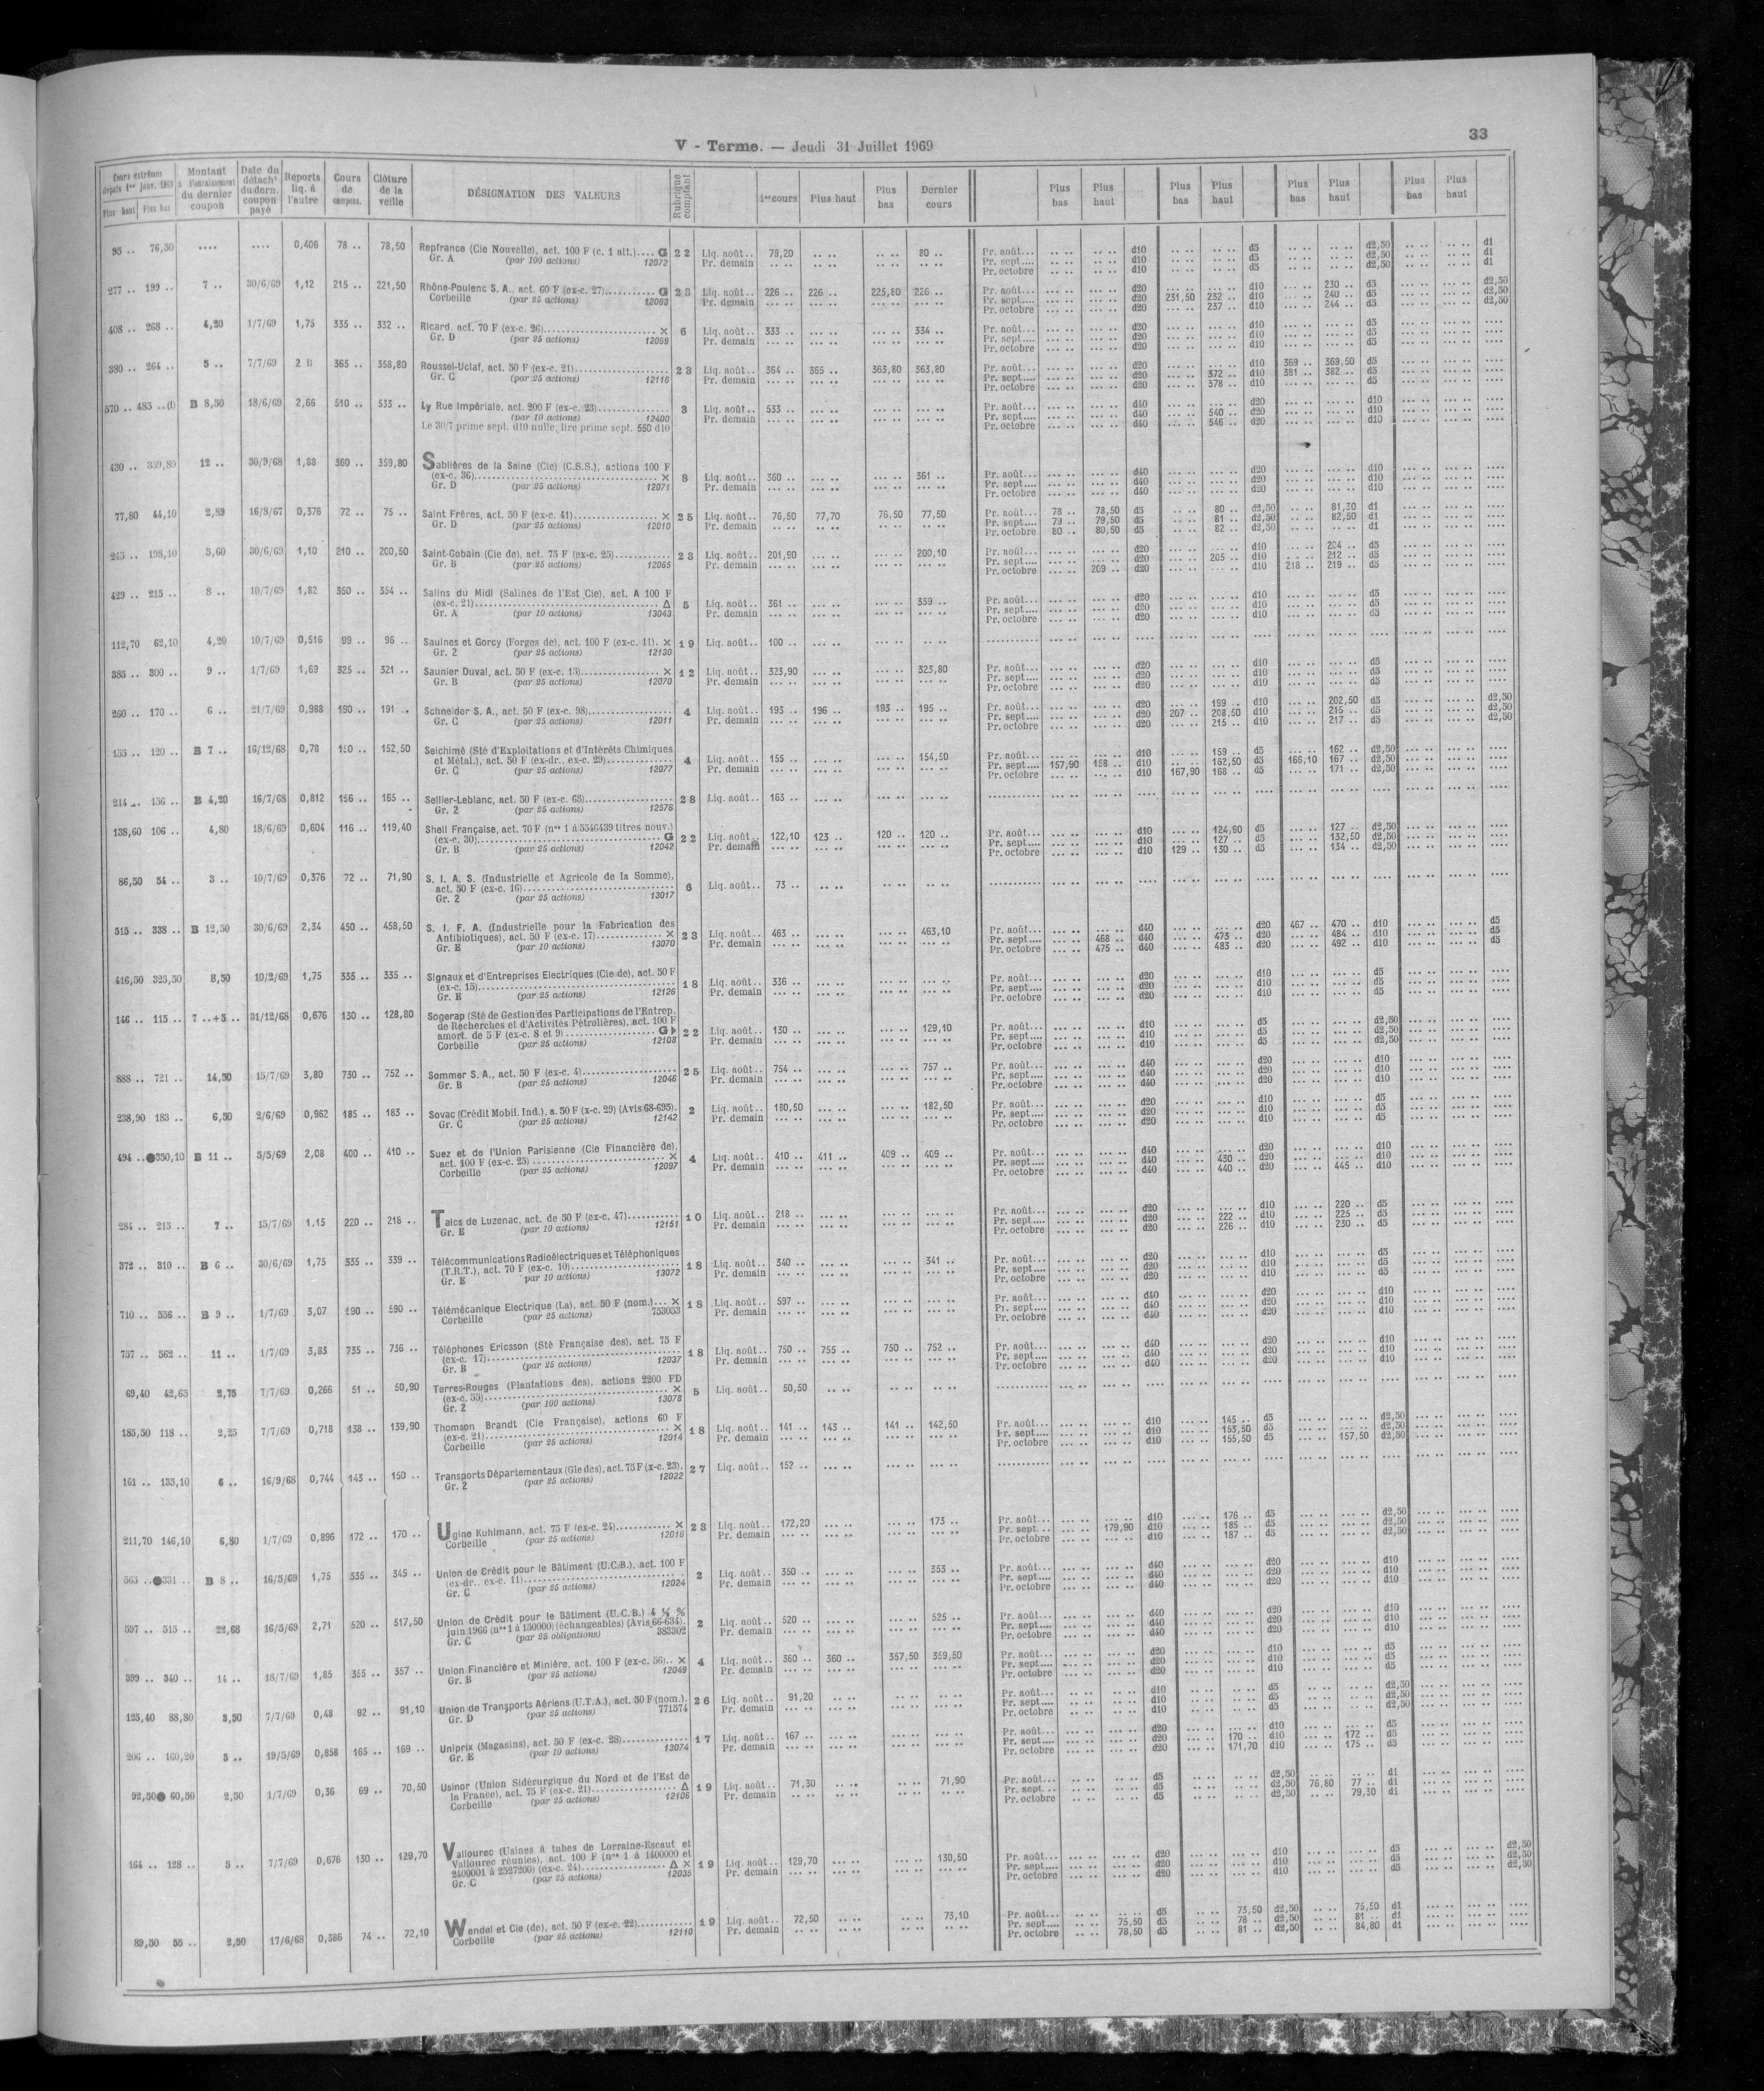 33
V - Terme. — Jeudi 31 Juillet 1969
Cours extrêmes depuis 1er janv. 1969 Plus haut Plus bas | Montant à l'encaissement du dernier coupon | Date du détacht du dern. coupon payé | Reports liq. à l'autre | Cours de compens. | Clôture de la veille | DÉSIGNATION DES VALEURS | Rubrique comptant | 1er cours | Plus haut | Plus bas | Dernier cours | Plus bas | Plus haut | Plus bas | Plus haut | Plus bas | Plus haut | Plus bas | Plus haut
95 .. 76,50 .... .... 0,406 78 .. 78,50 Repfrance (Cie Nouvelle), act. 100 F (c. 1 att.).... G 22 Liq. août.. 79,20 .. .. .. .. 80 .. Pr. août... d10 d5 d2,50 d1
Gr. A (par 100 actions) 12072 Pr. demain Pr. sept.... d10 d5 d2,50 d1
Pr. octobre d10 d5 d2,50 d1
277 .. 199 .. 7 .. 30/6/69 1,12 215 .. 221,50 Rhône-Poulenc S. A., act. 60 F (ex-c. 27)........... G 23 Liq. août.. 226 .. 226 .. 225,80 226 .. Pr. août... d20 d10 230 .. d5 d2,50
Corbeille (par 25 actions) 12063 Pr. demain Pr. sept.... d20 231,50 232 .. d10 240 .. d5 d2,50
Pr. octobre d20 237 .. d10 244 .. d5 d2,50
408 .. 268 .. 4,20 1/7/69 1,75 335 .. 332 .. Ricard, act. 70 F (ex-c. 26)...................... × 6 Liq. août.. 333 .. 334 .. Pr. août... d20 d10 d5
Gr. D (par 25 actions) 12059 Pr. demain Pr. sept.... d20 d10 d5
Pr. octobre d20 d10 d5
380 .. 264 .. 5 .. 7/7/69 2 B 365 .. 358,80 Roussel-Uclaf, act. 50 F (ex-c. 21)................... 23 Liq. août.. 364 .. 365 .. 363,80 363,80 Pr. août... d20 d10 369 .. 369,50 d5
Gr. C (par 25 actions) 12116 Pr. demain Pr. sept.... d20 372 .. d10 381 .. 382 .. d5
Pr. octobre d20 378 .. d10 d5
570 .. 485 ..(l) B 8,50 18/6/69 2,66 510 .. 533 .. Ly Rue Impériale, act. 200 F (ex-c. 23).............. 3 Liq. août.. 533 .. Pr. août... d40 d20 d10
(par 10 actions) 12400 Pr. demain Pr. sept.... d40 540 .. d20 d10
Le 30/7 prime sept. d10 nulle, lire prime sept. 550 d10 Pr. octobre d40 546 .. d20 d10
430 .. 339,80 12 .. 30/9/68 1,88 360 .. 359,80 Sablières de la Seine (Cie) (C.S.S.), actions 100 F
(ex-c. 36)............................... × 8 Liq. août.. 360 .. 361 .. Pr. août... d40 d20 d10
Gr. D (par 25 actions) 12071 Pr. demain Pr. sept.... d40 d20 d10
Pr. octobre d40 d20 d10
77,80 44,10 2,89 16/8/67 0,376 72 .. 75 .. Saint Frères, act. 50 F (ex-c. 41)................ × 25 Liq. août.. 76,50 77,70 76,50 77,50 Pr. août... 78 .. 78,50 d5 80 .. d2,50 81,30 d1
Gr. D (par 25 actions) 12010 Pr. demain Pr. sept.... 79 .. 79,50 d5 81 .. d2,50 82,50 d1
Pr. octobre 80 .. 80,50 d5 82 .. d2,50 d1
245 .. 198,10 5,60 30/6/69 1,10 210 .. 200,50 Saint-Gobain (Cie de), act. 75 F (ex-c. 25)............ 23 Liq. août.. 201,90 200,10 Pr. août... d20 d10 204 .. d5
Gr. B (par 25 actions) 12065 Pr. demain Pr. sept.... d20 205 .. d10 212 .. d5
Pr. octobre 209 .. d20 d10 218 .. 219 .. d5
429 .. 215 .. 8 .. 10/7/69 1,82 350 .. 354 .. Salins du Midi (Salines de l'Est Cie), act. A 100 F
(ex-c. 21)............................... Δ 5 Liq. août.. 361 .. 359 .. Pr. août... d20 d10 d5
Gr. A (par 10 actions) 13043 Pr. demain Pr. sept.... d20 d10 d5
Pr. octobre d20 d10 d5
112,70 62,10 4,20 10/7/69 0,516 99 .. 96 .. Saulnes et Gorcy (Forges de), act. 100 F (ex-c. 11). × 19 Liq. août.. 100 ..
Gr. 2 (par 25 actions) 12130
385 .. 300 .. 9 .. 1/7/69 1,69 325 .. 321 .. Saunier Duval, act. 50 F (ex-c. 15)................ × 12 Liq. août.. 323,90 323,80 Pr. août... d20 d10 d5
Gr. B (par 25 actions) 12070 Pr. demain Pr. sept.... d20 d10 d5
Pr. octobre d20 d10 d5
260 .. 170 .. 6 .. 21/7/69 0,988 190 .. 191 .. Schneider S. A., act. 50 F (ex-c. 98)................. 4 Liq. août.. 193 .. 196 .. 193 .. 195 .. Pr. août... d20 199 .. d10 202,50 d5 d2,50
Gr. C (par 25 actions) 12011 Pr. demain Pr. sept.... d20 207 .. 208,50 d10 215 .. d5 d2,50
Pr. octobre d20 215 .. d10 217 .. d5 d2,50
155 .. 120 .. B 7 .. 16/12/68 0,78 150 .. 152,50 Seichimé (Sté d'Exploitations et d'Intérêts Chimiques
et Métal.), act. 50 F (ex-dr., ex-c. 29).............. 4 Liq. août.. 155 .. 154,50 Pr. août... d10 159 .. d5 162 .. d2,50
Gr. C (par 25 actions) 12077 Pr. demain Pr. sept.... 157,90 158 .. d10 162,50 d5 166,10 167 .. d2,50
Pr. octobre d10 167,90 168 .. d5 171 .. d2,50
214 .. 156 .. B 4,20 16/7/68 0,812 156 .. 165 .. Sellier-Leblanc, act. 50 F (ex-c. 65)................... 28 Liq. août.. 163 ..
Gr. 2 (par 25 actions) 12576
138,60 106 .. 4,80 18/6/69 0,604 116 .. 119,40 Shell Française, act. 70 F (nos 1 à 5546439 titres nouv.)
(ex-c. 30)............................... G 22 Liq. août.. 122,10 123 .. 120 .. 120 .. Pr. août... d10 124,90 d5 127 .. d2,50
Gr. B (par 25 actions) 12042 Pr. demain Pr. sept.... d10 127 .. d5 132,50 d2,50
Pr. octobre d10 129 .. 130 .. d5 134 .. d2,50
86,50 54 .. 3 .. 10/7/69 0,376 72 .. 71,90 S. I. A. S. (Industrielle et Agricole de la Somme),
act. 50 F (ex-c. 16)............................... 6 Liq. août.. 73 ..
Gr. 2 (par 25 actions) 13017
515 .. 338 .. B 12,50 30/6/69 2,34 450 .. 458,50 S. I. F. A. (Industrielle pour la Fabrication des
Antibiotiques), act. 50 F (ex-c. 17)............. × 23 Liq. août.. 463 .. 463,10 Pr. août... d40 d20 467 .. 470 .. d10 d5
Gr. E (par 10 actions) 13070 Pr. demain Pr. sept.... 468 .. d40 473 .. d20 484 .. d10 d5
Pr. octobre 475 .. d40 483 .. d20 492 .. d10 d5
416,50 325,50 8,50 10/2/69 1,75 335 .. 335 .. Signaux et d'Entreprises Electriques (Cie de), act. 50 F
(ex-c. 15)............................... 18 Liq. août.. 336 .. Pr. août... d20 d10 d5
Gr. E (par 25 actions) 12126 Pr. demain Pr. sept.... d20 d10 d5
Pr. octobre d20 d10 d5
146 .. 115 .. 7 ..+5 .. 31/12/68 0,676 130 .. 128,80 Sogerap (Sté de Gestion des Participations de l'Entrep.
de Recherches et d'Activités Pétrolières), act. 100 F
amort. de 5 F (ex-c. 8 et 9) ................... G 22 Liq. août.. 130 .. 129,10 Pr. août... d10 d5 d2,50
Corbeille (par 25 actions) 12108 Pr. demain Pr. sept.... d10 d5 d2,50
Pr. octobre d10 d5 d2,50
888 .. 721 .. 14,50 15/7/69 3,80 730 .. 752 .. Sommer S. A., act. 50 F (ex-c. 4).................... 25 Liq. août.. 754 .. 757 .. Pr. août... d40 d20 d10
Gr. B (par 25 actions) 12046 Pr. demain Pr. sept.... d40 d20 d10
Pr. octobre d40 d20 d10
238,90 183 .. 6,50 2/6/69 0,962 185 .. 183 .. Sovac (Crédit Mobil. Ind.), a. 50 F (x-c. 29) (Avis 68-695). 2 Liq. août.. 180,50 182,50 Pr. août... d20 d10 d5
Gr. C (par 25 actions) 12142 Pr. demain Pr. sept.... d20 d10 d5
Pr. octobre d20 d10 d5
494 ..●350,10 B 11 .. 5/5/69 2,08 400 .. 410 .. Suez et de l'Union Parisienne (Cie Financière de),
act. 100 F (ex-c. 25) ........................... × 4 Liq. août.. 410 .. 411 .. 409 .. 409 .. Pr. août... d40 d20 d10
Corbeille (par 25 actions) 12097 Pr. demain Pr. sept.... d40 430 .. d20 d10
Pr. octobre d40 440 .. d20 445 .. d10
284 .. 215 .. 7 .. 15/7/69 1,15 220 .. 218 .. Talcs de Luzenac, act. de 50 F (ex-c. 47)........... 10 Liq. août.. 218 .. Pr. août... d20 d10 220 .. d5
Gr. E (par 10 actions) 12151 Pr. demain Pr. sept.... d20 222 .. d10 225 .. d5
Pr. octobre d20 226 .. d10 230 .. d5
372 .. 310 .. B 6 .. 30/6/69 1,75 335 .. 339 .. Télécommunications Radioélectriques et Téléphoniques
(T.R.T.), act. 70 F (ex-c. 10)....................... 18 Liq. août.. 340 .. 341 .. Pr. août... d20 d10 d5
Gr. E par 10 actions) 13072 Pr. demain Pr. sept.... d20 d10 d5
Pr. octobre d20 d10 d5
710 .. 556 .. B 9 .. 1/7/69 3,07 590 .. 590 .. Télémécanique Electrique (La), act. 50 F (nom.)... × 18 Liq. août.. 597 .. Pr. août... d40 d20 d10
Corbeille (par 25 actions) 753053 Pr. demain Pr. sept.... d40 d20 d10
Pr. octobre d40 d20 d10
757 .. 562 .. 11 .. 1/7/69 3,83 735 .. 736 .. Téléphones Ericsson (Sté Française des), act. 75 F
(ex-c. 17)............................... 18 Liq. août.. 750 .. 755 .. 750 .. 752 .. Pr. août... d40 d20 d10
Gr. B (par 25 actions) 12037 Pr. demain Pr. sept.... d40 d20 d10
Pr. octobre d40 d20 d10
69,40 42,65 2,75 7/7/69 0,266 51 .. 50,90 Terres-Rouges (Plantations des), actions 2200 FD
(ex-c. 55)............................... × 5 Liq. août.. 50,50
Gr. 2 (par 100 actions) 13078
185,50 118 .. 2,25 7/7/69 0,718 138 .. 139,90 Thomson Brandt (Cie Française), actions 60 F
(ex-c. 21)............................... × 18 Liq. août.. 141 .. 143 .. 141 .. 142,50 Pr. août... d10 145 .. d5 d2,50
Corbeille (par 25 actions) 12014 Pr. demain Pr. sept.... d10 153,50 d5 d2,50
Pr. octobre d10 155,50 d5 157,50 d2,50
161 .. 135,10 6 .. 16/9/68 0,744 143 .. 150 .. Transports Départementaux (Gle des), act. 75 F (x-c. 23). 27 Liq. août.. 152 ..
Gr. 2 (par 25 actions) 12022
211,70 146,10 6,80 1/7/69 0,896 172 .. 170 .. Ugine Kuhlmann, act. 75 F (ex-c. 24)........... × 23 Liq. août.. 172,20 173 .. Pr. août... d10 176 .. d5 d2,50
Corbeille (par 25 actions) 12016 Pr. demain Pr. sept... 179,90 d10 185 .. d5 d2,50
Pr. octobre d10 187 .. d5 d2,50
565 ..●331 .. B 8 .. 16/5/69 1,75 335 .. 345 .. Union de Crédit pour le Bâtiment (U.C.B.), act. 100 F
(ex-dr., ex-c. 11)............................... 2 Liq. août.. 350 .. 353 .. Pr. août... d40 d20 d10
Gr. C (par 25 actions) 12024 Pr. demain Pr. sept.... d40 d20 d10
Pr. octobre d40 d20 d10
597 .. 515 .. 22,68 16/5/69 2,71 520 .. 517,50 Union de Crédit pour le Bâtiment (U.C.B.) 4 ½ %
juin 1966 (nos 1 à 150000) (échangeables) (Avis 66-634). 2 Liq. août.. 520 .. 525 .. Pr. août... d40 d20 d10
Gr. C (par 25 obligations) 383302 Pr. demain Pr. sept.... d40 d20 d10
Pr. octobre d40 d20 d10
399 .. 340 .. 14 .. 18/7/69 1,85 355 .. 357 .. Union Financière et Minière, act. 100 F (ex-c. 56).. × 4 Liq. août.. 360 .. 360 .. 357,50 359,50 Pr. août... d20 d10 d5
Gr. B (par 25 actions) 12049 Pr. demain Pr. sept.... d20 d10 d5
Pr. octobre d20 d10 d5
125,40 88,80 3,50 7/7/69 0,48 92 .. 91,10 Union de Transports Aériens (U.T.A.), act. 50 F (nom.). 26 Liq. août.. 91,20 Pr. août... d10 d5 d2,50
Gr. D (par 25 actions) 771574 Pr. demain Pr. sept.... d10 d5 d2,50
Pr. octobre d10 d5 d2,50
206 .. 160,20 5 .. 19/5/69 0,858 165 .. 169 .. Uniprix (Magasins), act. 50 F (ex-c. 28).............. 17 Liq. août.. 167 .. Pr. août... d20 d10 d5
Gr. E (par 10 actions) 13074 Pr. demain Pr. sept.... d20 170 .. d10 172 .. d5
Pr. octobre d20 171,70 d10 175 .. d5
92,50● 60,50 2,50 1/7/69 0,36 69 .. 70,50 Usinor (Union Sidérurgique du Nord et de l'Est de
la France), act. 75 F (ex-c. 21).................. Δ 19 Liq. août.. 71,30 71,90 Pr. août... d5 d2,50 d1
Corbeille (par 25 actions) 12106 Pr. demain Pr. sept... d5 d2,50 76,80 77 .. d1
Pr. octobre d5 d2,50 79,30 d1
164 .. 128 .. 5 .. 7/7/69 0,676 130 .. 129,70 Vallourec (Usines à tubes de Lorraine-Escaut et
Vallourec réunies), act. 100 F (nos 1 à 1400000 et
2400001 à 2527200) (ex-c. 24)................ Δ × 19 Liq. août.. 129,70 130,50 Pr. août... d20 d10 d5 d2,50
Gr. C (par 25 actions) 12035 Pr. demain Pr. sept.... d20 d10 d5 d2,50
Pr. octobre d20 d10 d5 d2,50
89,50 55 .. 2,50 17/6/68 0,386 74 .. 72,10 Wendel et Cie (de), act. 50 F (ex-c. 22)........... 19 Liq. août.. 72,50 73,10 Pr. août... d5 73,50 d2,50 75,50 d1
Corbeille (par 25 actions) 12110 Pr. demain Pr. sept.... 75,50 d5 78 .. d2,50 81 .. d1
Pr. octobre 78,50 d5 81 .. d2,50 84,80 d1